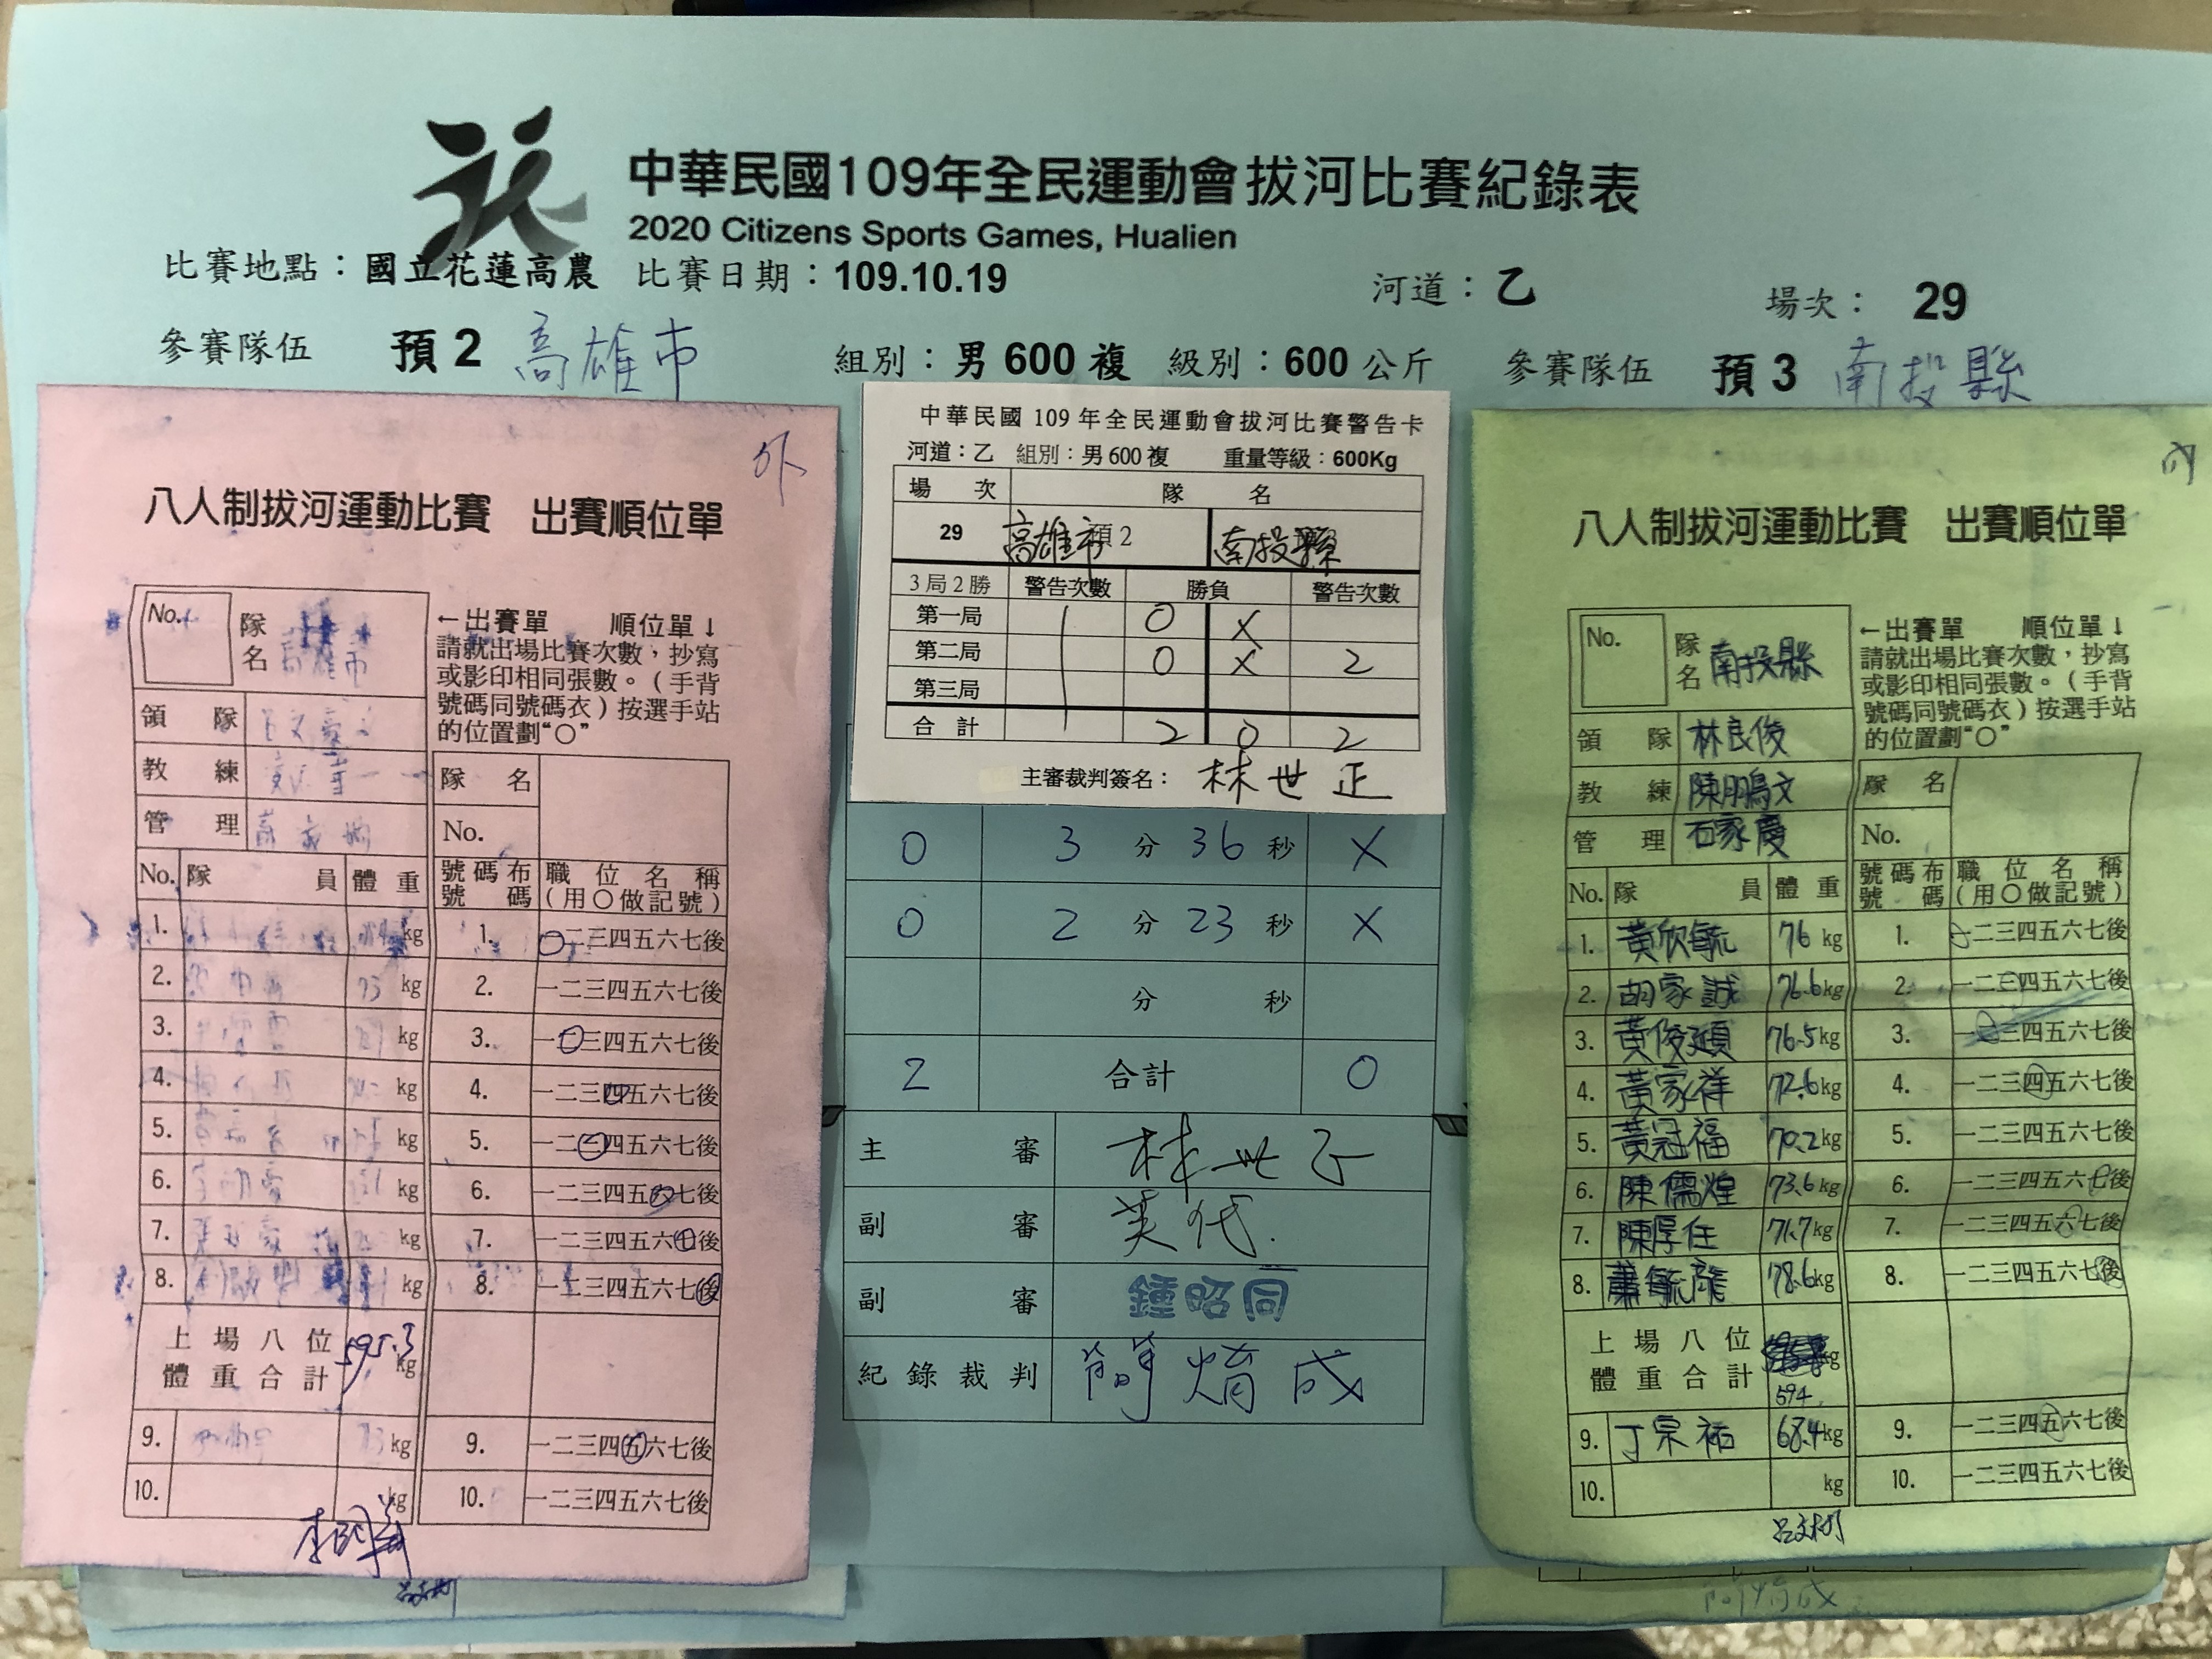 中華民國109年全民運動會拔河比賽紀錄表
2020 Citizens Sports Games, Hualien
比賽地點：國立花蓮高農 比賽日期：109.10.19 河道：乙 場次： 29
參賽隊伍 預 2 高雄市 組別：男 600 複 級別：600 公斤 參賽隊伍 預 3 南投縣
外
八人制拔河運動比賽 出賽順位單
No.
隊名 高雄市
←出賽單 順位單↓
請就出場比賽次數，抄寫
或影印相同張數。（手背
號碼同號碼衣）按選手站
的位置劃“○”
領隊
教練
管理
隊名
No.
No. 隊員 體重 號碼布號碼 職位名稱（用○做記號）
1. kg 1. 二三四五六七後
2. 73 kg 2. 一二三四五六七後
3. kg 3. 一二三四五六七後
4. kg 4. 一二三四五六七後
5. kg 5. 一二三四五六七後
6. kg 6. 一二三四五六七後
7. kg 7. 一二三四五六七後
8. kg 8. 一二三四五六七後
上場八位體重合計 595.3 kg
9. 73 kg 9. 一二三四五六七後
10. kg 10. 一二三四五六七後
中華民國 109 年全民運動會拔河比賽警告卡
河道：乙 組別：男 600 複 重量等級：600Kg
場次 隊名
29 高雄市 預 2 南投縣
3 局 2 勝 警告次數 勝負 警告次數
第一局 O X
第二局 O X 2
第三局
合計 2 0 2
主審裁判簽名： 林世正
O 3 分 36 秒 X
O 2 分 23 秒 X
分 秒
2 合計 0
主審 林世正
副審 英代
副審 鍾昭同
紀錄裁判 簡焴成
八人制拔河運動比賽 出賽順位單
No.
隊名 南投縣
←出賽單 順位單↓
請就出場比賽次數，抄寫
或影印相同張數。（手背
號碼同號碼衣）按選手站
的位置劃“○”
領隊 林良俊
教練 陳鵬文
管理 石家慶
隊名
No.
No. 隊員 體重 號碼布號碼 職位名稱（用○做記號）
1. 黃欣毓 76 kg 1. 一二三四五六七後
2. 胡家誠 76.6 kg 2. 一二三四五六七後
3. 黃俊順 76.5 kg 3. 一二三四五六七後
4. 黃家祥 72.6 kg 4. 一二三四五六七後
5. 黃冠福 70.2 kg 5. 一二三四五六七後
6. 陳儒煌 73.6 kg 6. 一二三四五六七後
7. 陳厚任 71.7 kg 7. 一二三四五六七後
8. 蕭毓龍 78.6 kg 8. 一二三四五六七後
上場八位體重合計 kg
594
9. 丁宗祐 68.4 kg 9. 一二三四五六七後
10. kg 10. 一二三四五六七後